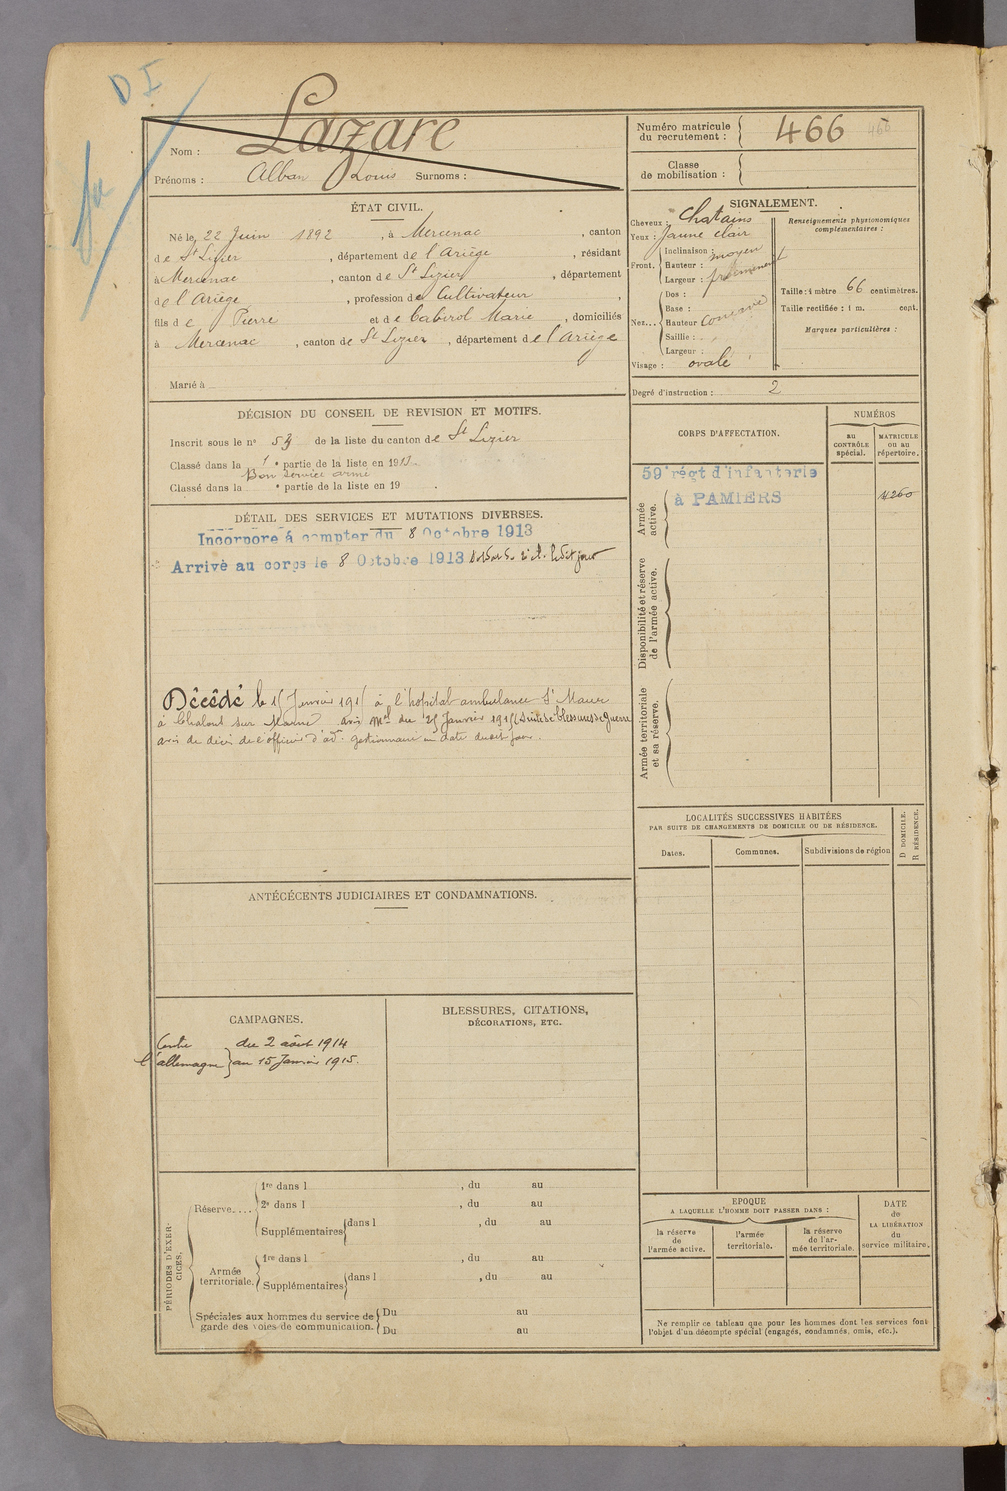 D I
Nom : Lazare
Prénoms : Alban Louis Surnoms :
Numéro matricule du recrutement : 466 466
Classe de mobilisation :
ÉTAT CIVIL.
Né le 22 Juin 1892, à Mercenac, canton
de St Lizier, département de l'Ariège, résidant
à Mercenac, canton de St Lizier, département
de l'Ariège, profession de Cultivateur,
fils de Pierre et de Cabirol Marie, domiciliés
à Mercenac, canton de St Lizier, département de l'Ariège
Marié à
SIGNALEMENT.
Cheveux : Chatains
Yeux : Jaune clair
Front. Inclinaison : moyen
Hauteur :
Largeur :
Nez... Dos :
Base :
Hauteur
Saillie :
Largeur :
Visage : ovale
Renseignements physionomiques complémentaires :
Taille : 1 mètre 66 centimètres.
Taille rectifiée : 1 m. cent.
Marques particulières :
Degré d'instruction : 2
DÉCISION DU CONSEIL DE REVISION ET MOTIFS.
Inscrit sous le n° de la liste du canton de St Lizier
Classé dans la 1e partie de la liste en 1913.
Bon service armé
Classé dans la e partie de la liste en 19 .
DÉTAIL DES SERVICES ET MUTATIONS DIVERSES.
Incorporé à compter du 8 Octobre 1913
Arrivé au corps le 8 Octobre 1913 ledit jour
Décédé le 15 Janvier 1915 à l'hopital ambulance St Maur
à Chalons sur Marne avis Mel du 25 Janvier 1915 (Suite de blessures de guerre
avis de décès de l'officier d'ad. gestionnaire en date dudit jour.
CORPS D'AFFECTATION.
NUMÉROS
au CONTRÔLE spécial.
MATRICULE ou au répertoire.
Armée active.
59e régt d'infanterie
à PAMIERS
4260
Disponibilité et réserve de l'armée active.
Armée territoriale et sa réserve.
LOCALITÉS SUCCESSIVES HABITÉES
PAR SUITE DE CHANGEMENTS DE DOMICILE OU DE RÉSIDENCE.
Dates.
Communes.
Subdivisions de région
D DOMICILE.
R RÉSIDENCE.
ANTÉCÉCENTS JUDICIAIRES ET CONDAMNATIONS.
CAMPAGNES.
Contre l'allemagne } du 2 août 1914
au 15 Janvier 1915.
BLESSURES, CITATIONS,
DÉCORATIONS, ETC.
PÉRIODES D'EXERCICES.
Réserve....
1re dans l , du au
2e dans l , du au
Supplémentaires dans l , du au
Armée territoriale.
1re dans l , du au
Supplémentaires dans l , du au
Spéciales aux hommes du service de garde des voies de communication.
Du au
Du au
EPOQUE
A LAQUELLE L'HOMME DOIT PASSER DANS :
la réserve de l'armée active.
l'armée territoriale.
la réserve de l'armée territoriale.
DATE de LA LIBÉRATION du service militaire.
Ne remplir ce tableau que pour les hommes dont les services font
l'objet d'un décompte spécial (engagés, condamnés, omis, etc.).